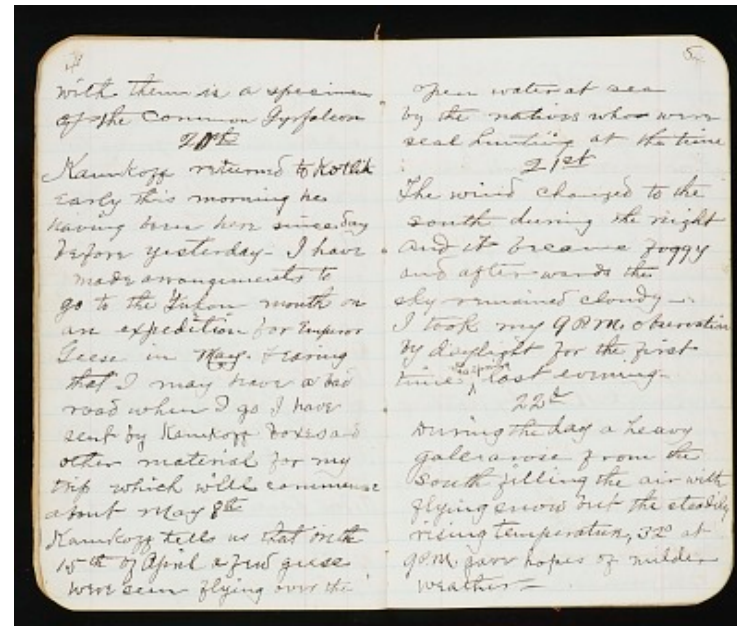 with them is a specimen
of the Common Gyrfalcon
20th
Kamkoff returned to Kotlik
early this morning he
having been here since day
before yesterday - I have
made arrangements to
go to the Yukon mouth on
an expedition for Emperor
Geese in May. Fearing
that I may have a bad
road when I go I have
sent by Kamkoff boxes and
other material for my
trip which will commence
about May 8th
Kamkoff tells us that on the
15th of April a few geese
were seen flying over the
5
open water at sea
by the natives who were
seal hunting at the time
21st
The wind changed to the
south during the night
and it became foggy
and afterwards the
sky remained cloudy -
I took my 9 P.M. observation
by daylight for the first
time, last evening -
22d
During the day a heavy
gale arose from the
south filling the air with
flying snow but the steadily
rising temperature, 32° at
9 P.M. gave hopes of milder
weather -